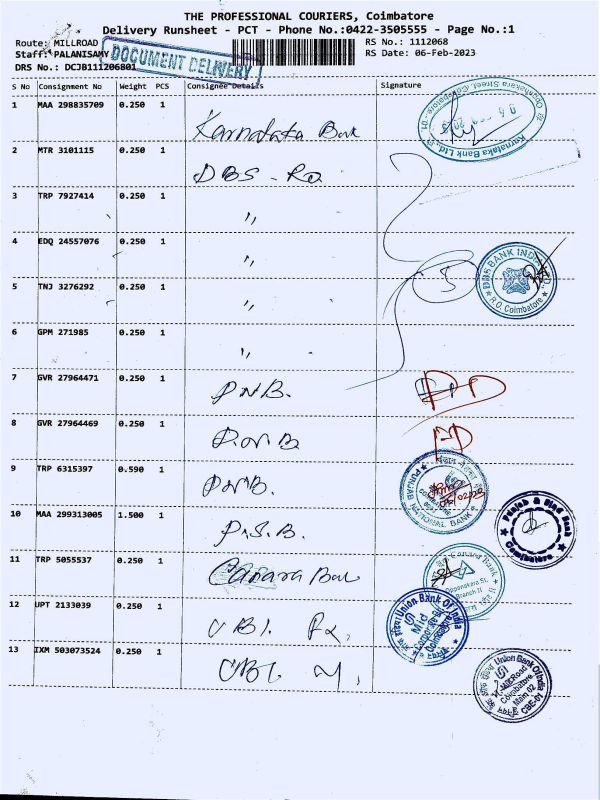 THE PROFESSIONAL COURIERS, Coimbatore
Delivery Runsheet - PCT - Phone No.:0422-3505555 - Page No.:1
Route: MILLROAD
RS No.: 1112068
Staff: PALANISAMY
RS Date: 06-Feb-2023
DRS No.: DCJB111206801
DOCUMENT DELIVERY
S No Consignment No Weight PCS Consignee Details Signature
1 MAA 298835709 0.250 1 Karnataka Bank
2 MTR 3101115 0.250 1 DBS - RO
3 TRP 7927414 0.250 1 "
4 EDQ 24557076 0.250 1 "
5 TNJ 3276292 0.250 1 "
6 GPM 271985 0.250 1 "
7 GVR 27964471 0.250 1 PNB.
8 GVR 27964469 0.250 1 PNB
9 TRP 6315397 0.590 1 PNB.
10 MAA 299313005 1.500 1 P.S.B.
11 TRP 5055537 0.250 1 Canara Ban
12 UPT 2133039 0.250 1 UBI.
13 IXM 503073524 0.250 1 UBI.
Karnataka Bank Ltd.
Oppanakara Street, Coimbatore - 01.
5
DBS BANK INDIA
R.O. Coimbatore
PUNJAB NATIONAL BANK
Punjab & Sind Bank
Coimbatore
Canara Bank
Oppanakara St.
Branch II
Union Bank Of India
Mid
Corporate
Coimbatore
Union Bank Of India
Coimbatore
Main 02
CBE-01